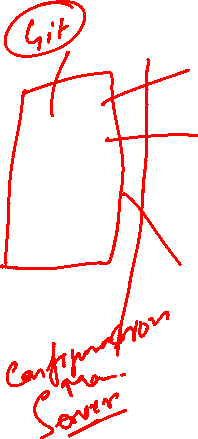 Git
Configuration
Ma.
Server